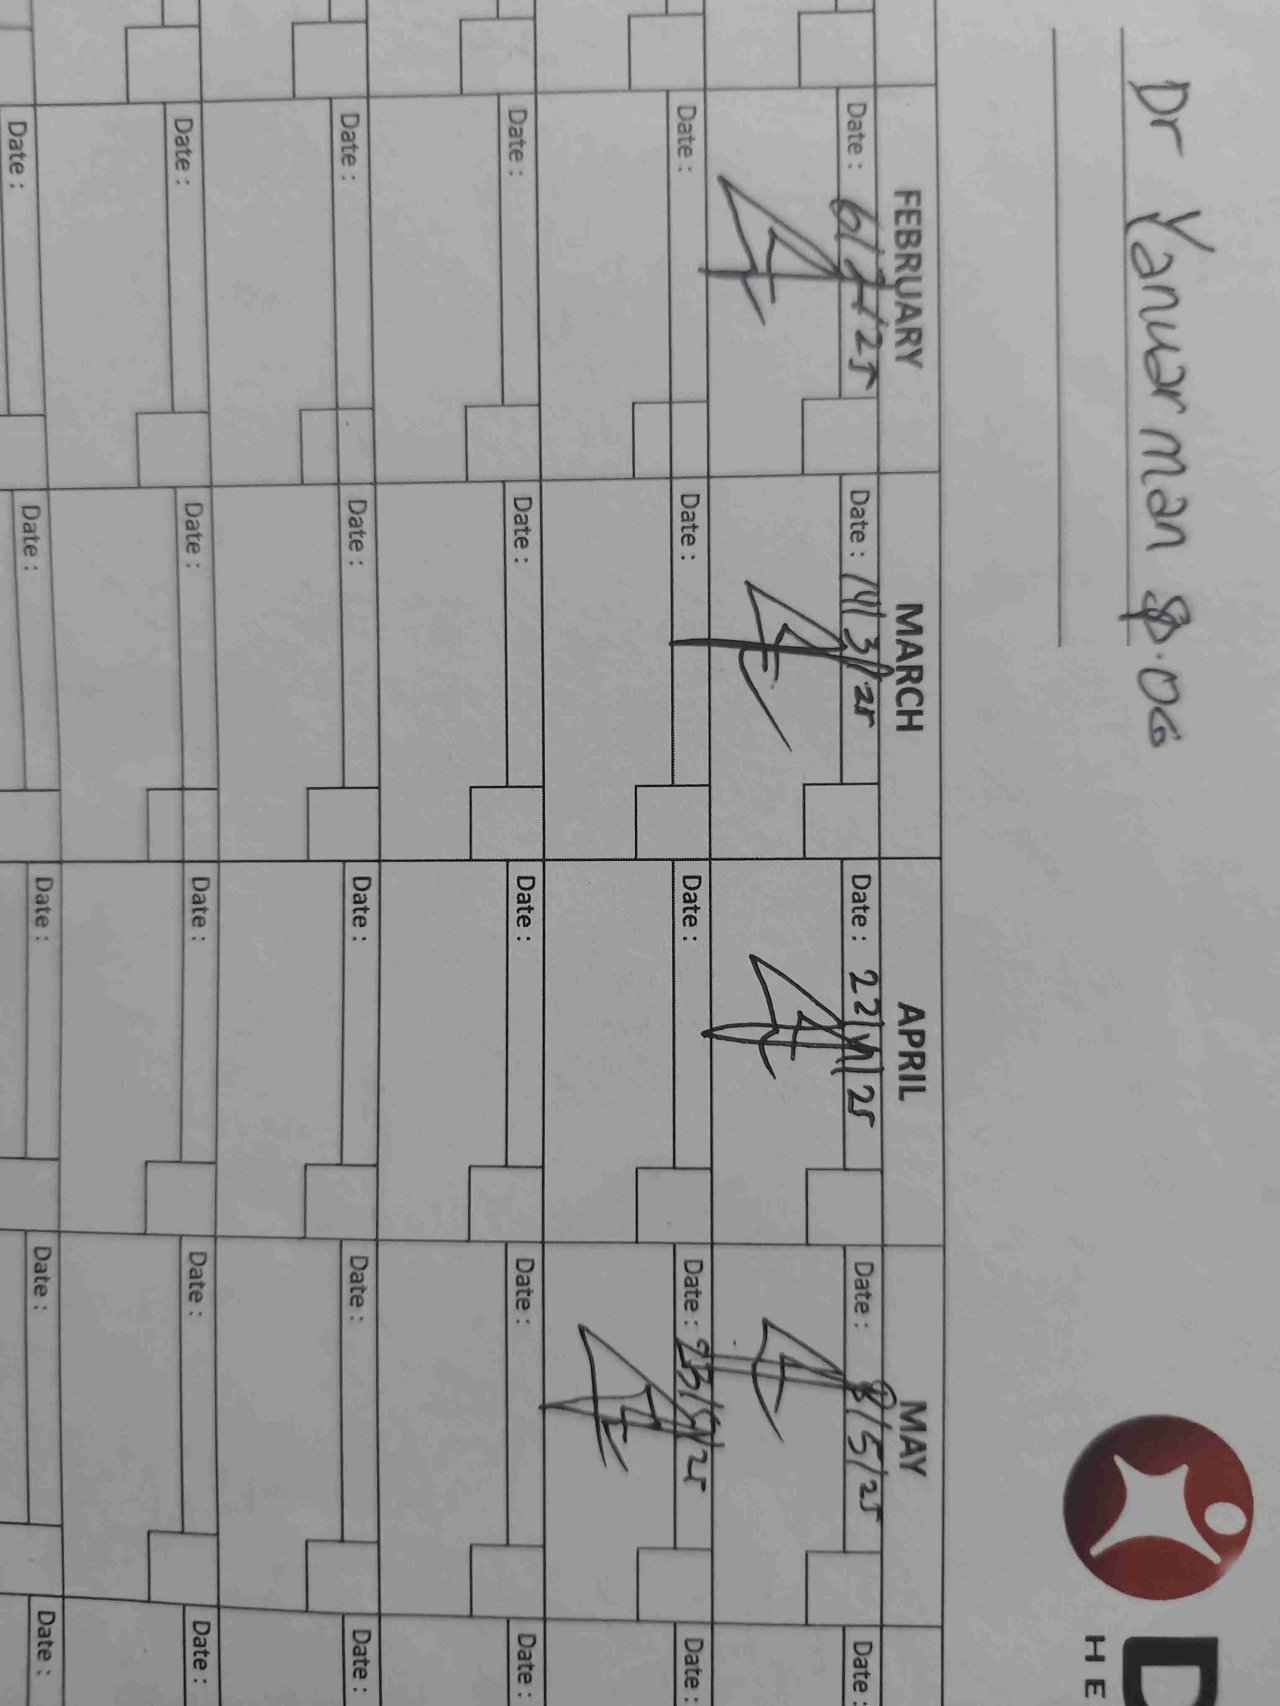 Dr Yanuarman Sp.OG
D
HE
FEBRUARY MARCH APRIL MAY
Date : 6/2/25 Date : 14/3/25 Date : 22/4/25 Date : 8/5/25 Date :
Date : Date : Date : Date : 23/5/25 Date :
Date : Date : Date : Date : Date :
Date : Date : Date : Date : Date :
Date : Date : Date : Date : Date :
Date : Date : Date : Date : Date :